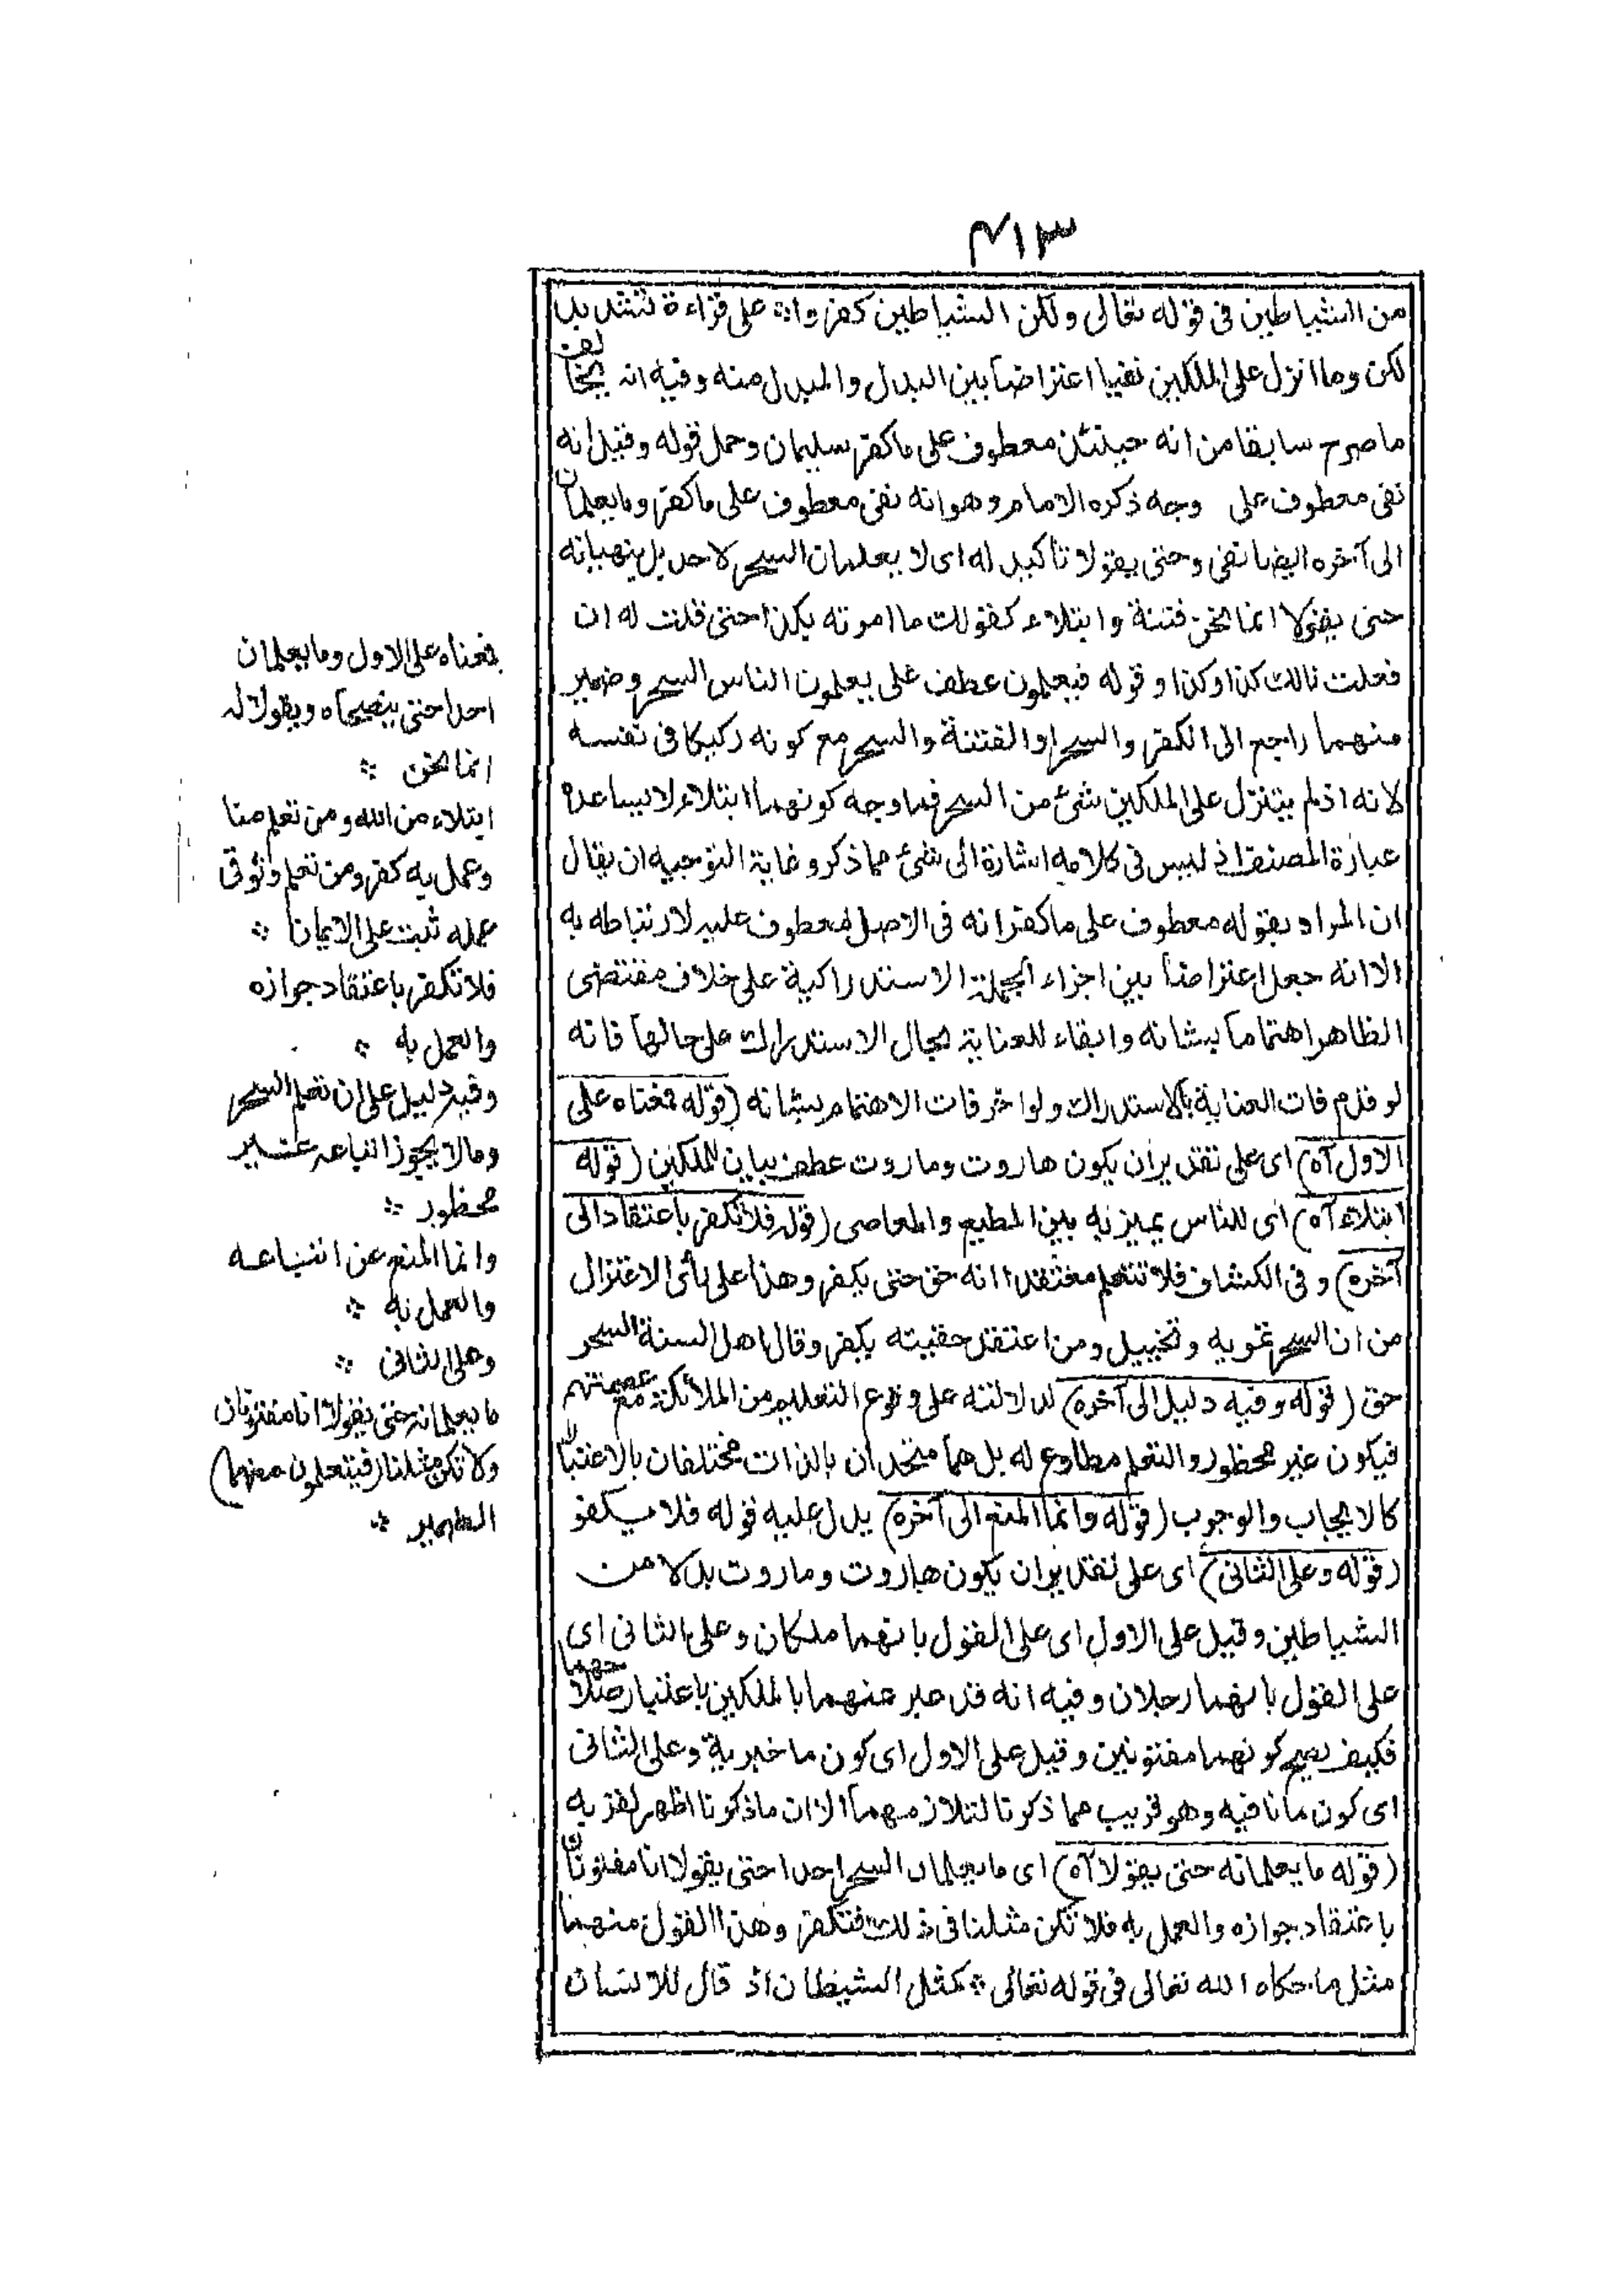 ٤١٣
من الشياطين فى قوله تعالى ولكن الشياطين كفروا انه على قراءة تشديد
لكن وما انزل على الملكين نفيا اعتراضا بين البدل والمبدل منه وفيه انه يخالف
ما صرح سابقا من انه حينئذ معطوف على ما كفر سليمان وحمل قوله وقيل انه
نفى معطوف على وجه ذكره الامام وهو انه نفى معطوف على ما كفر وما يعلمان
الى آخره ايضا نفى وحتى يقولا تأكيد له اى لا يعلمان السحر لاحد بل ينهيانه
حتى يقولا انما نحن فتنة وابتلاء كقولك ما امرته بكذا حتى قلت له ان
فعلت نالك كذا وكذا وقوله فيعلمون عطف على يعلمون الناس السحر وضمير
منهما راجع الى الكفر والسحر او الفتنة والسحر مع كونه ركيكا فى نفسه
لانه اذ لم يتنزل على الملكين شئ من السحر فما وجه كونهما ابتلاء لا يساعده
عبارة المصنف اذ ليس فى كلامه اشارة الى شئ مما ذكر وغاية التوجيه ان يقال
ان المراد بقوله معطوف على ما كفر انه فى الاصل معطوف عليه لارتباطه به
الا انه جعل اعتراضا بين اجزاء الجملة الاستدراكية على خلاف مقتضى
الظاهر اهتماما بشانه وابقاء للعناية بحال الاستدراك على حالها فانه
لو قدم فات العناية بالاستدراك ولو اخر فات الاهتمام بشانه (قوله فمعناه على
الاول آه) اى على تقدير ان يكون هاروت وماروت عطف بيان للملكين (قوله
ابتلاء آه) اى للناس يميز به بين المطيع والعاصى (قوله فلا تكفر باعتقاد الى
آخره) وفى الكشاف فلا تتعلم معتقدا انه حق حتى يكفر وهذا على رأى الاعتزال
من ان السحر تمويه وتخييل ومن اعتقد حقيته يكفر وقال اهل السنة السحر
حق (قوله وفيه دليل الى آخره) لدلالته على وقوع التعليم من الملائكة مع عصمتهم
فيكون غير محظور والتعلم مطاوع له بل هما متحدان بالذات مختلفان بالاعتبار
كالايجاب والوجوب (قوله وانما المنع الى آخره) يدل عليه قوله فلا يكفر
(قوله وعلى الثانى) اى على تقدير ان يكون هاروت وماروت بدلا من
الشياطين وقيل على الاول اى على القول بانهما ملكان وعلى الثانى اى
على القول بانهما رجلان وفيه انه قد عبر عنهما بالملكين باعتبار صلاحهما
فكيف يصح كونهما مفتونين وقيل على الاول اى كون ما خبرية وعلى الثانى
اى كون ما نافية وهو قريب مما ذكرنا لتلازمهما الا ان ما ذكرنا اظهر لقربه
(قوله ما يعلمانه حتى يقولا آه) اى ما يعلمان السحر احدا حتى يقولا انا مفتونان
باعتقاد جوازه والعمل به فلا تكن مثلنا فى ذلك فتكفر وهذا القول منهما
مثل ما حكاه الله تعالى فى قوله تعالى * كمثل الشيطان اذ قال للانسان
فمعناه على الاول وما يعلمان
احدا حتى ينصحاه ويقولا له
انما نحن *
ابتلاء من الله ومن تعلم منا
وعمل به كفر ومن تعلم وتوقى
عمله ثبت على الايمان *
فلا تكفر باعتقاد جوازه
والعمل به *
وفيه دليل على ان تعلم السحر
وما لا يجوز اتباعه غير
محظور *
وانما المنع عن اتباعه
والعمل به *
وعلى الثانى *
ما يعلمانه حتى يقولا انا مفتونان
ولا تكن مثلنا (فيتعلمون منهما)
الضمير *